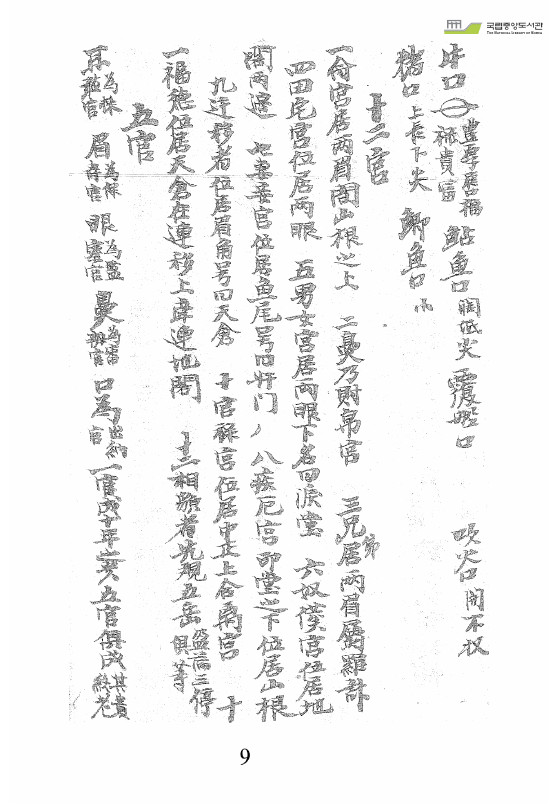 국립중앙도서관
THE NATIONAL LIBRARY OF KOREA
牛口 豊厚居福祿貴富 鮎魚口 濶低尖 覆船口 吹火口 開不収
猪口 上長下尖 鯽魚口 小
十二宮
一命宮居兩眉間山根之上 二鼻乃財帛宮 三兄弟居兩眉屬羅計
四田宅宮位居兩眼 五男女宮居兩眼下名曰淚堂 六奴僕宮位居地
閣兩邊 七妻妾宮位居魚尾号曰奸门 八疾厄宮印堂之下位居山根
九迁移者位居眉角号曰天倉 十官祿宮位居中正上合离宮 十
一福德位居天倉在連移上牽連地閣 十二相貌者先觀五岳 盈滿三停俱等
五官
耳為採聽官 眉為保壽官 眼為監察官 鼻為審辨官 口為出納官 一官成十年之貴 五官俱成其貴終老
9